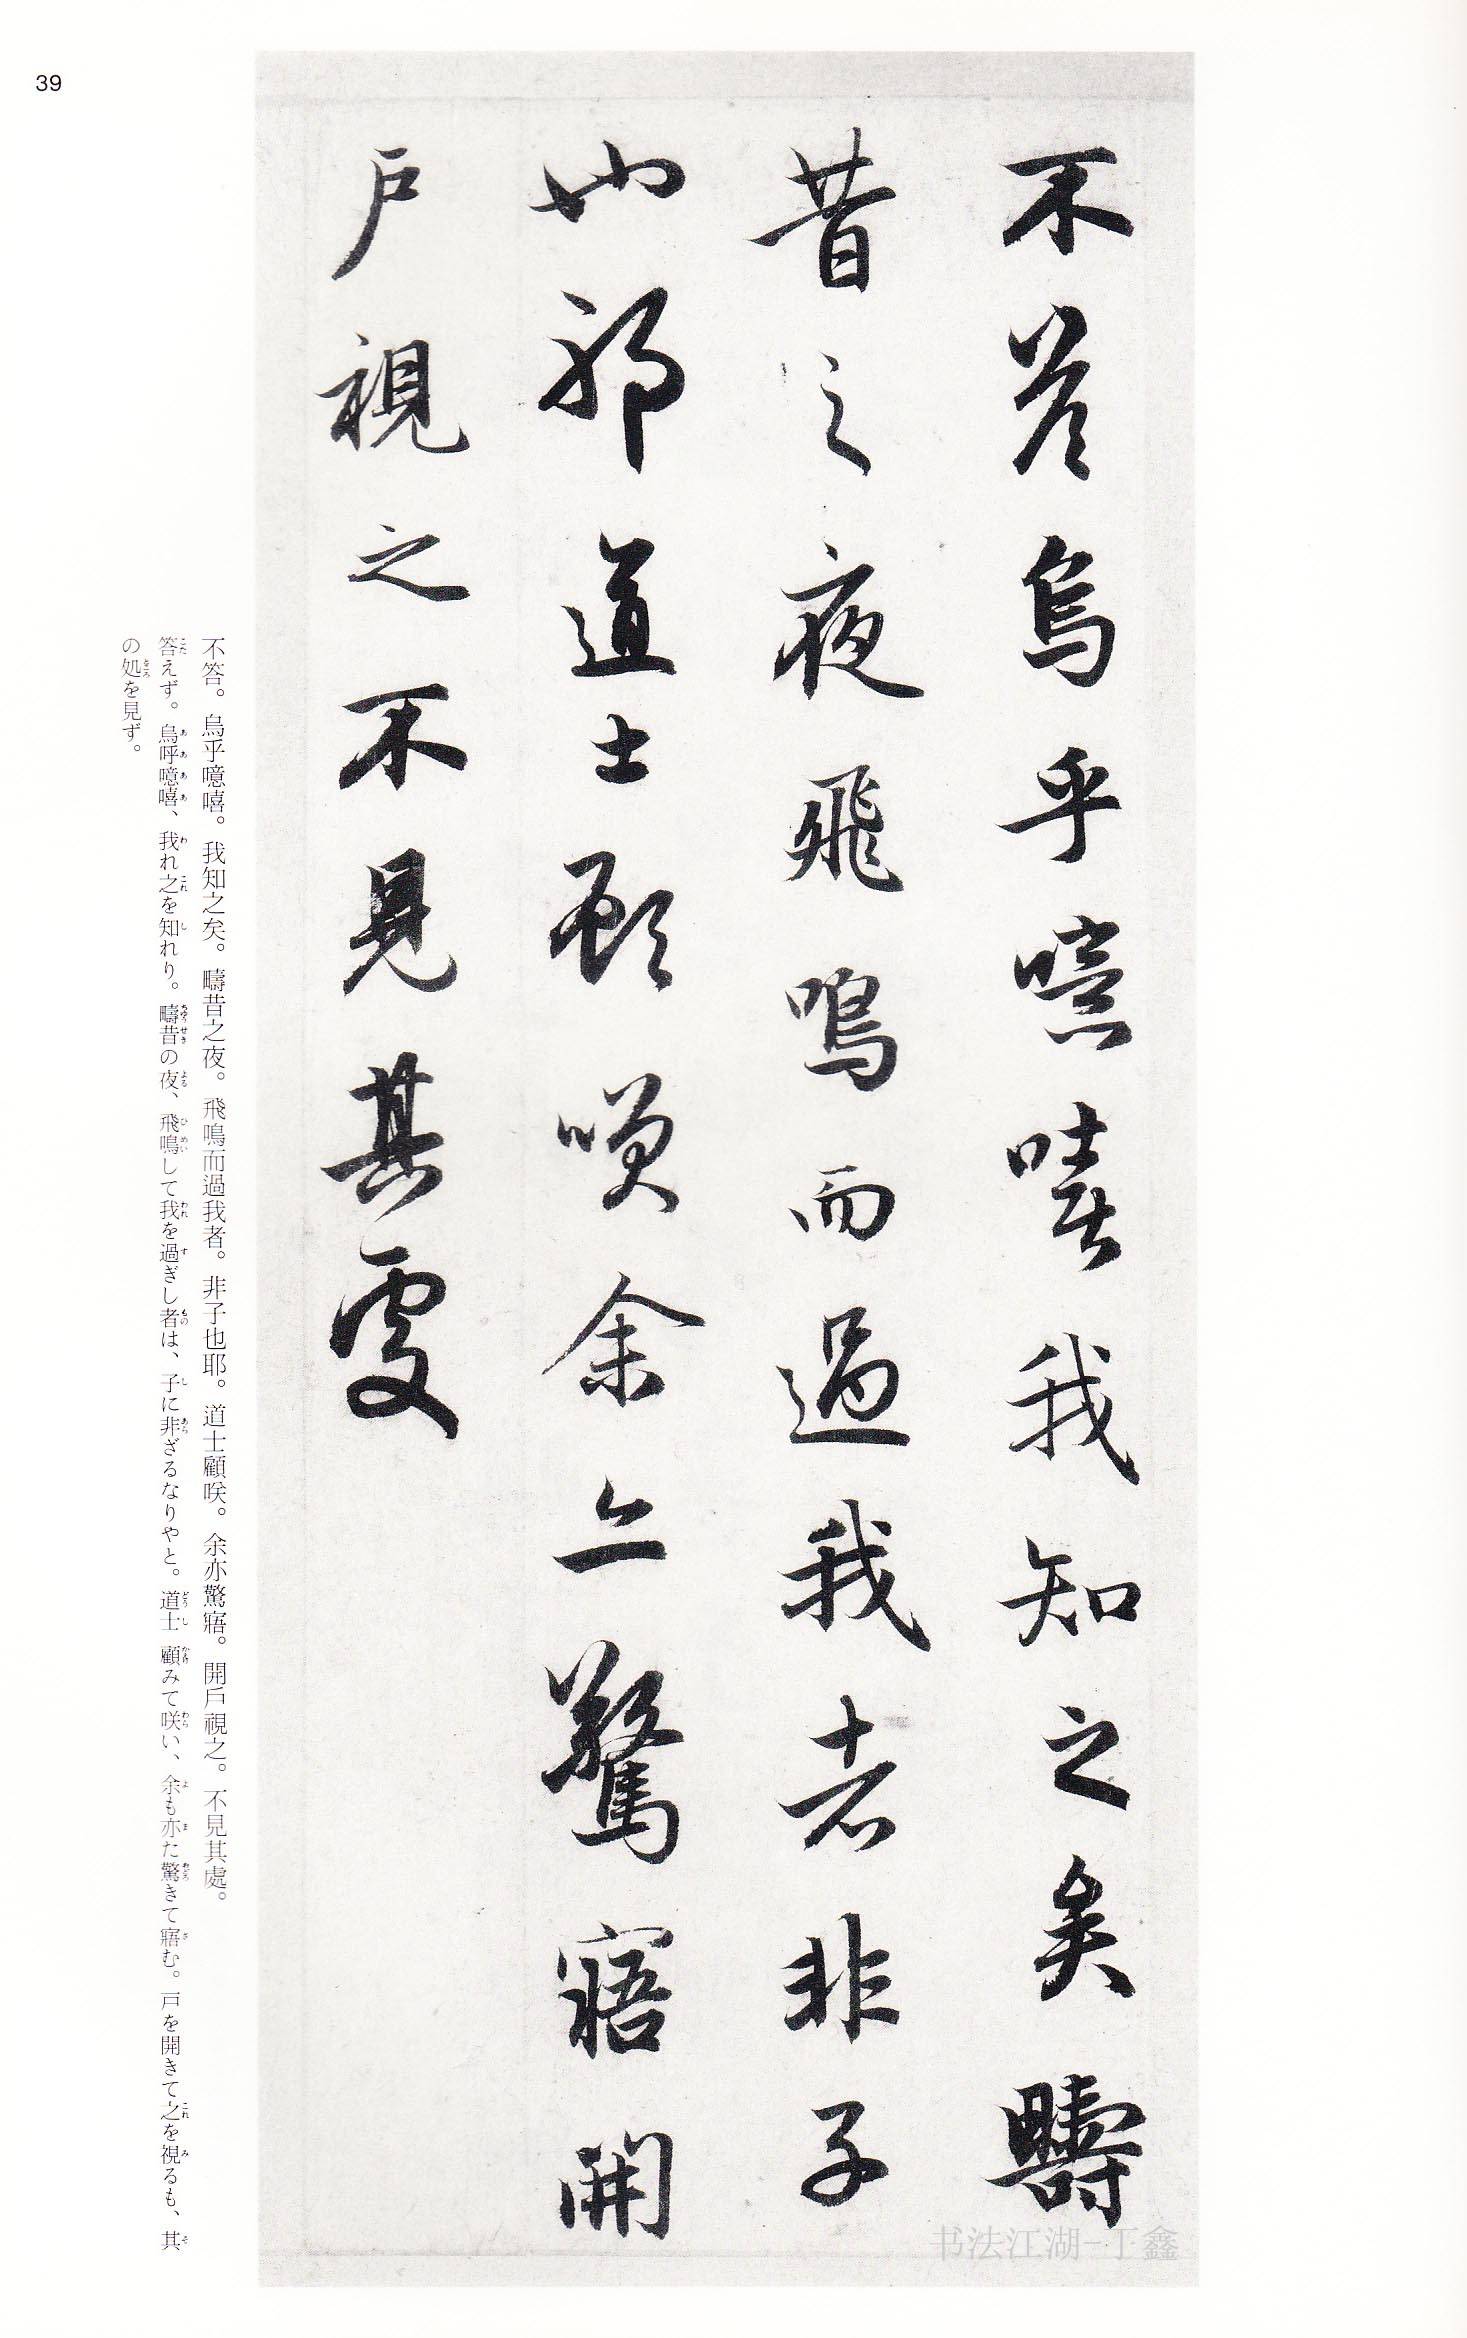 39
不荅烏乎噫嘻我知之矣疇
昔之夜飛鳴而過我者非子
也耶道士顧咲余亦驚寤開
戶視之不見其處
不答。烏乎噫嘻。我知之矣。疇昔之夜。飛鳴而過我者。非子也耶。道士顧咲。余亦驚寤。開戶視之。不見其處。
答えず。烏呼噫嘻、我れ之を知れり。疇昔の夜、飛鳴して我を過ぎし者は、子に非ざるなりやと。道士顧みて咲い、余も亦た驚きて寤む。戸を開きて之を視るも、其
の処を見ず。
书法江湖-丁鑫